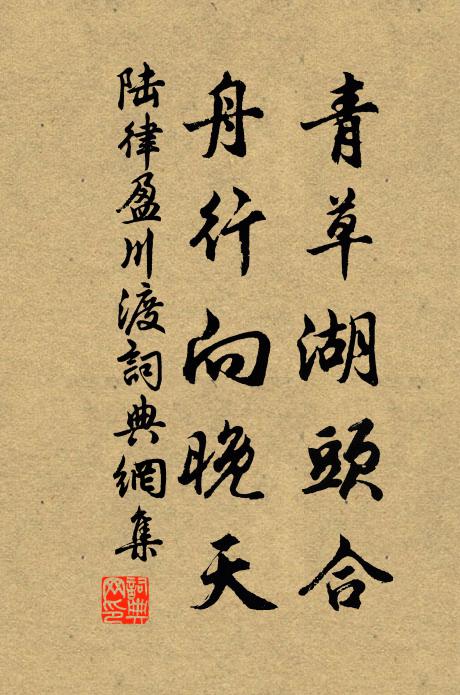 青草湖頭合
舟行向晚天
陸律盈川渡詞典網集
詞典網印